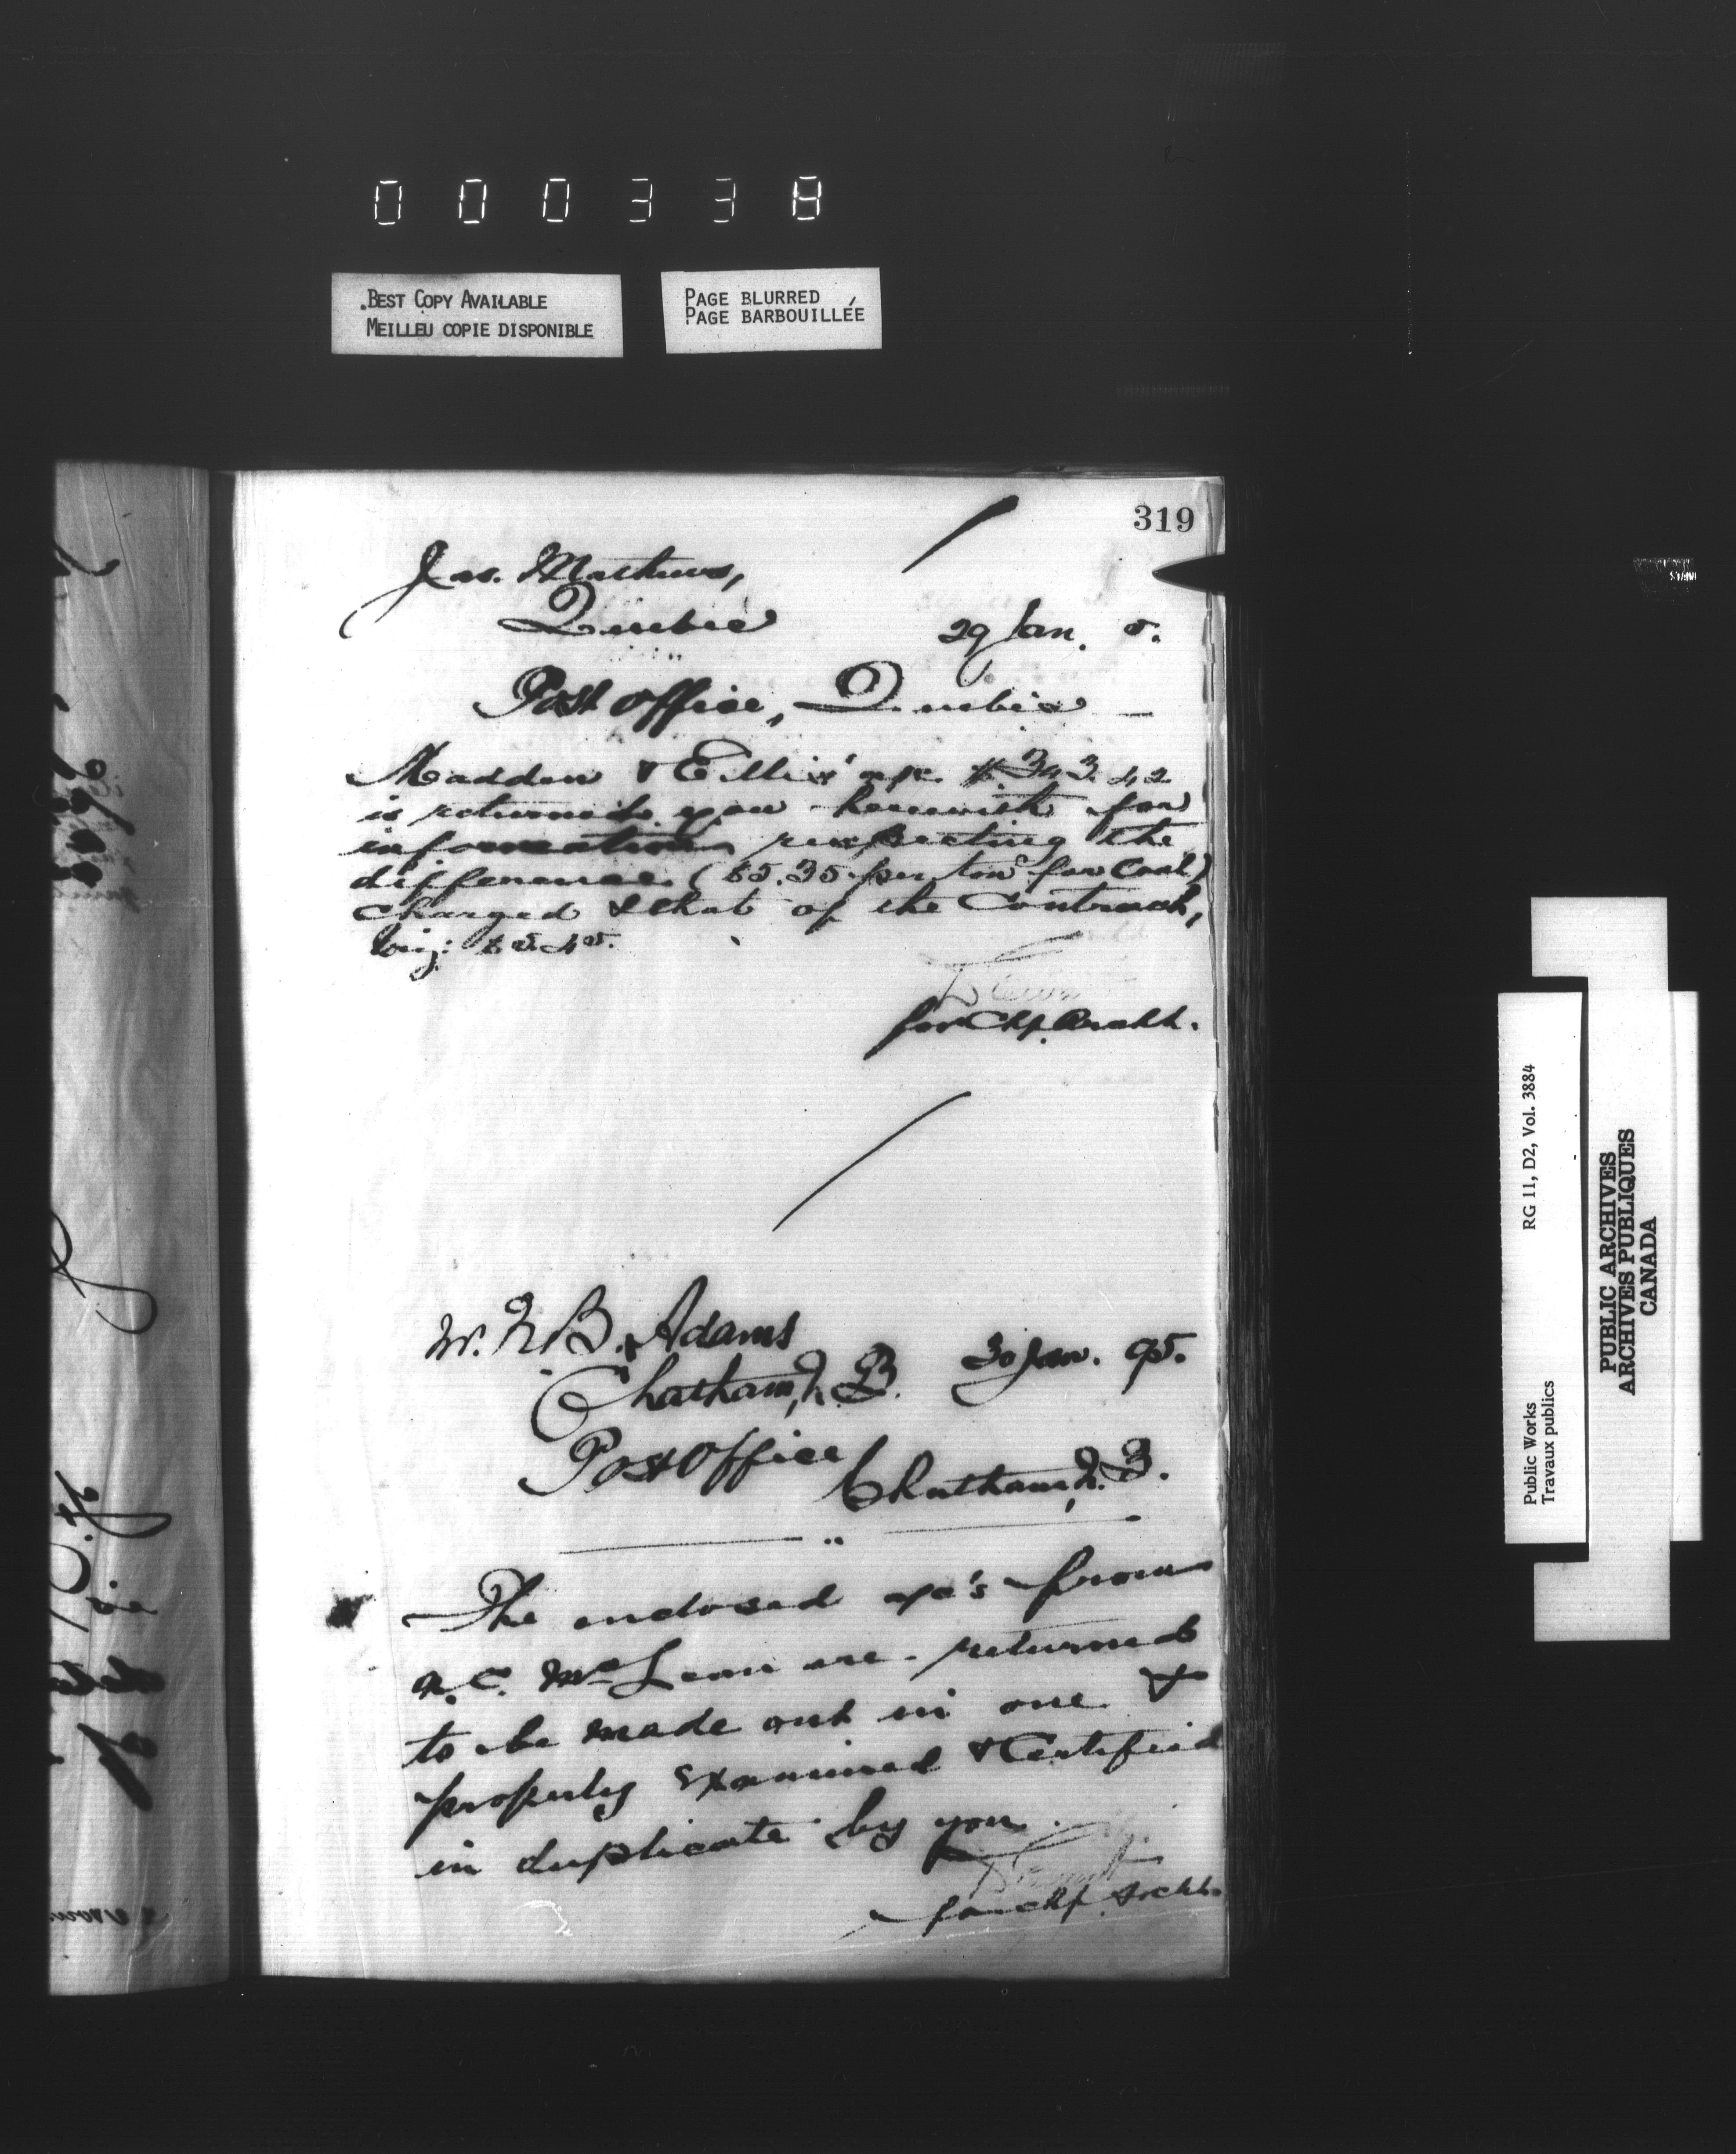 000338
BEST COPY AVAILABLE
MEILLEU COPIE DISPONIBLE
PAGE BLURRED
PAGE BARBOUILLÉE
319
Jas. Mathews,
Quebec 29 Jan. 5.
Post Office, Quebec
Madden & Ellis' a/c $343.42
is returned you herewith for
information respecting the
difference ($5.35 per ton for Coal)
charged & that of the Contract,
viz: $5.45.
for Chf. Archt.
W. B. Adams
Chatham, N.B. 30 Jan. 95.
Post Office
Chatham, N.B.
The enclosed a/c's from
McLean are returned
to be made out in one &
properly Examined & Certified
in duplicate by you.
for Chf. Archt.
RG 11, D2, Vol. 3884
Public Works
Travaux publics
PUBLIC ARCHIVES
ARCHIVES PUBLIQUES
CANADA